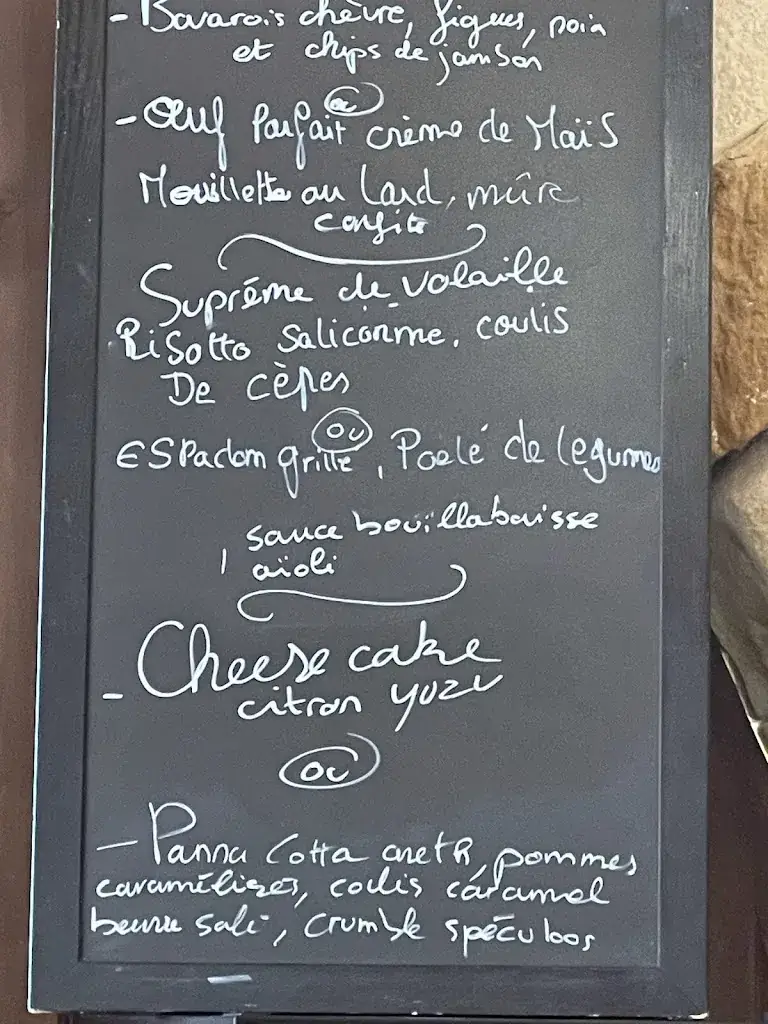 - Bavarois chèvre, figues, noix
et chips de jambon
ou
- Œuf Parfait crème de Maïs
Mouillette au Lard, mûre
confite
Suprême de volaille
Risotto salicorne, coulis
De cèpes
ou
ESPadom grillé, Poelé de legumes
sauce bouillabaisse
aïoli
- Cheese cake
citron yuzu
ou
- Panna Cotta aneth, pommes
caramélises, coulis caramel
beurre salé, crumble spéculoos